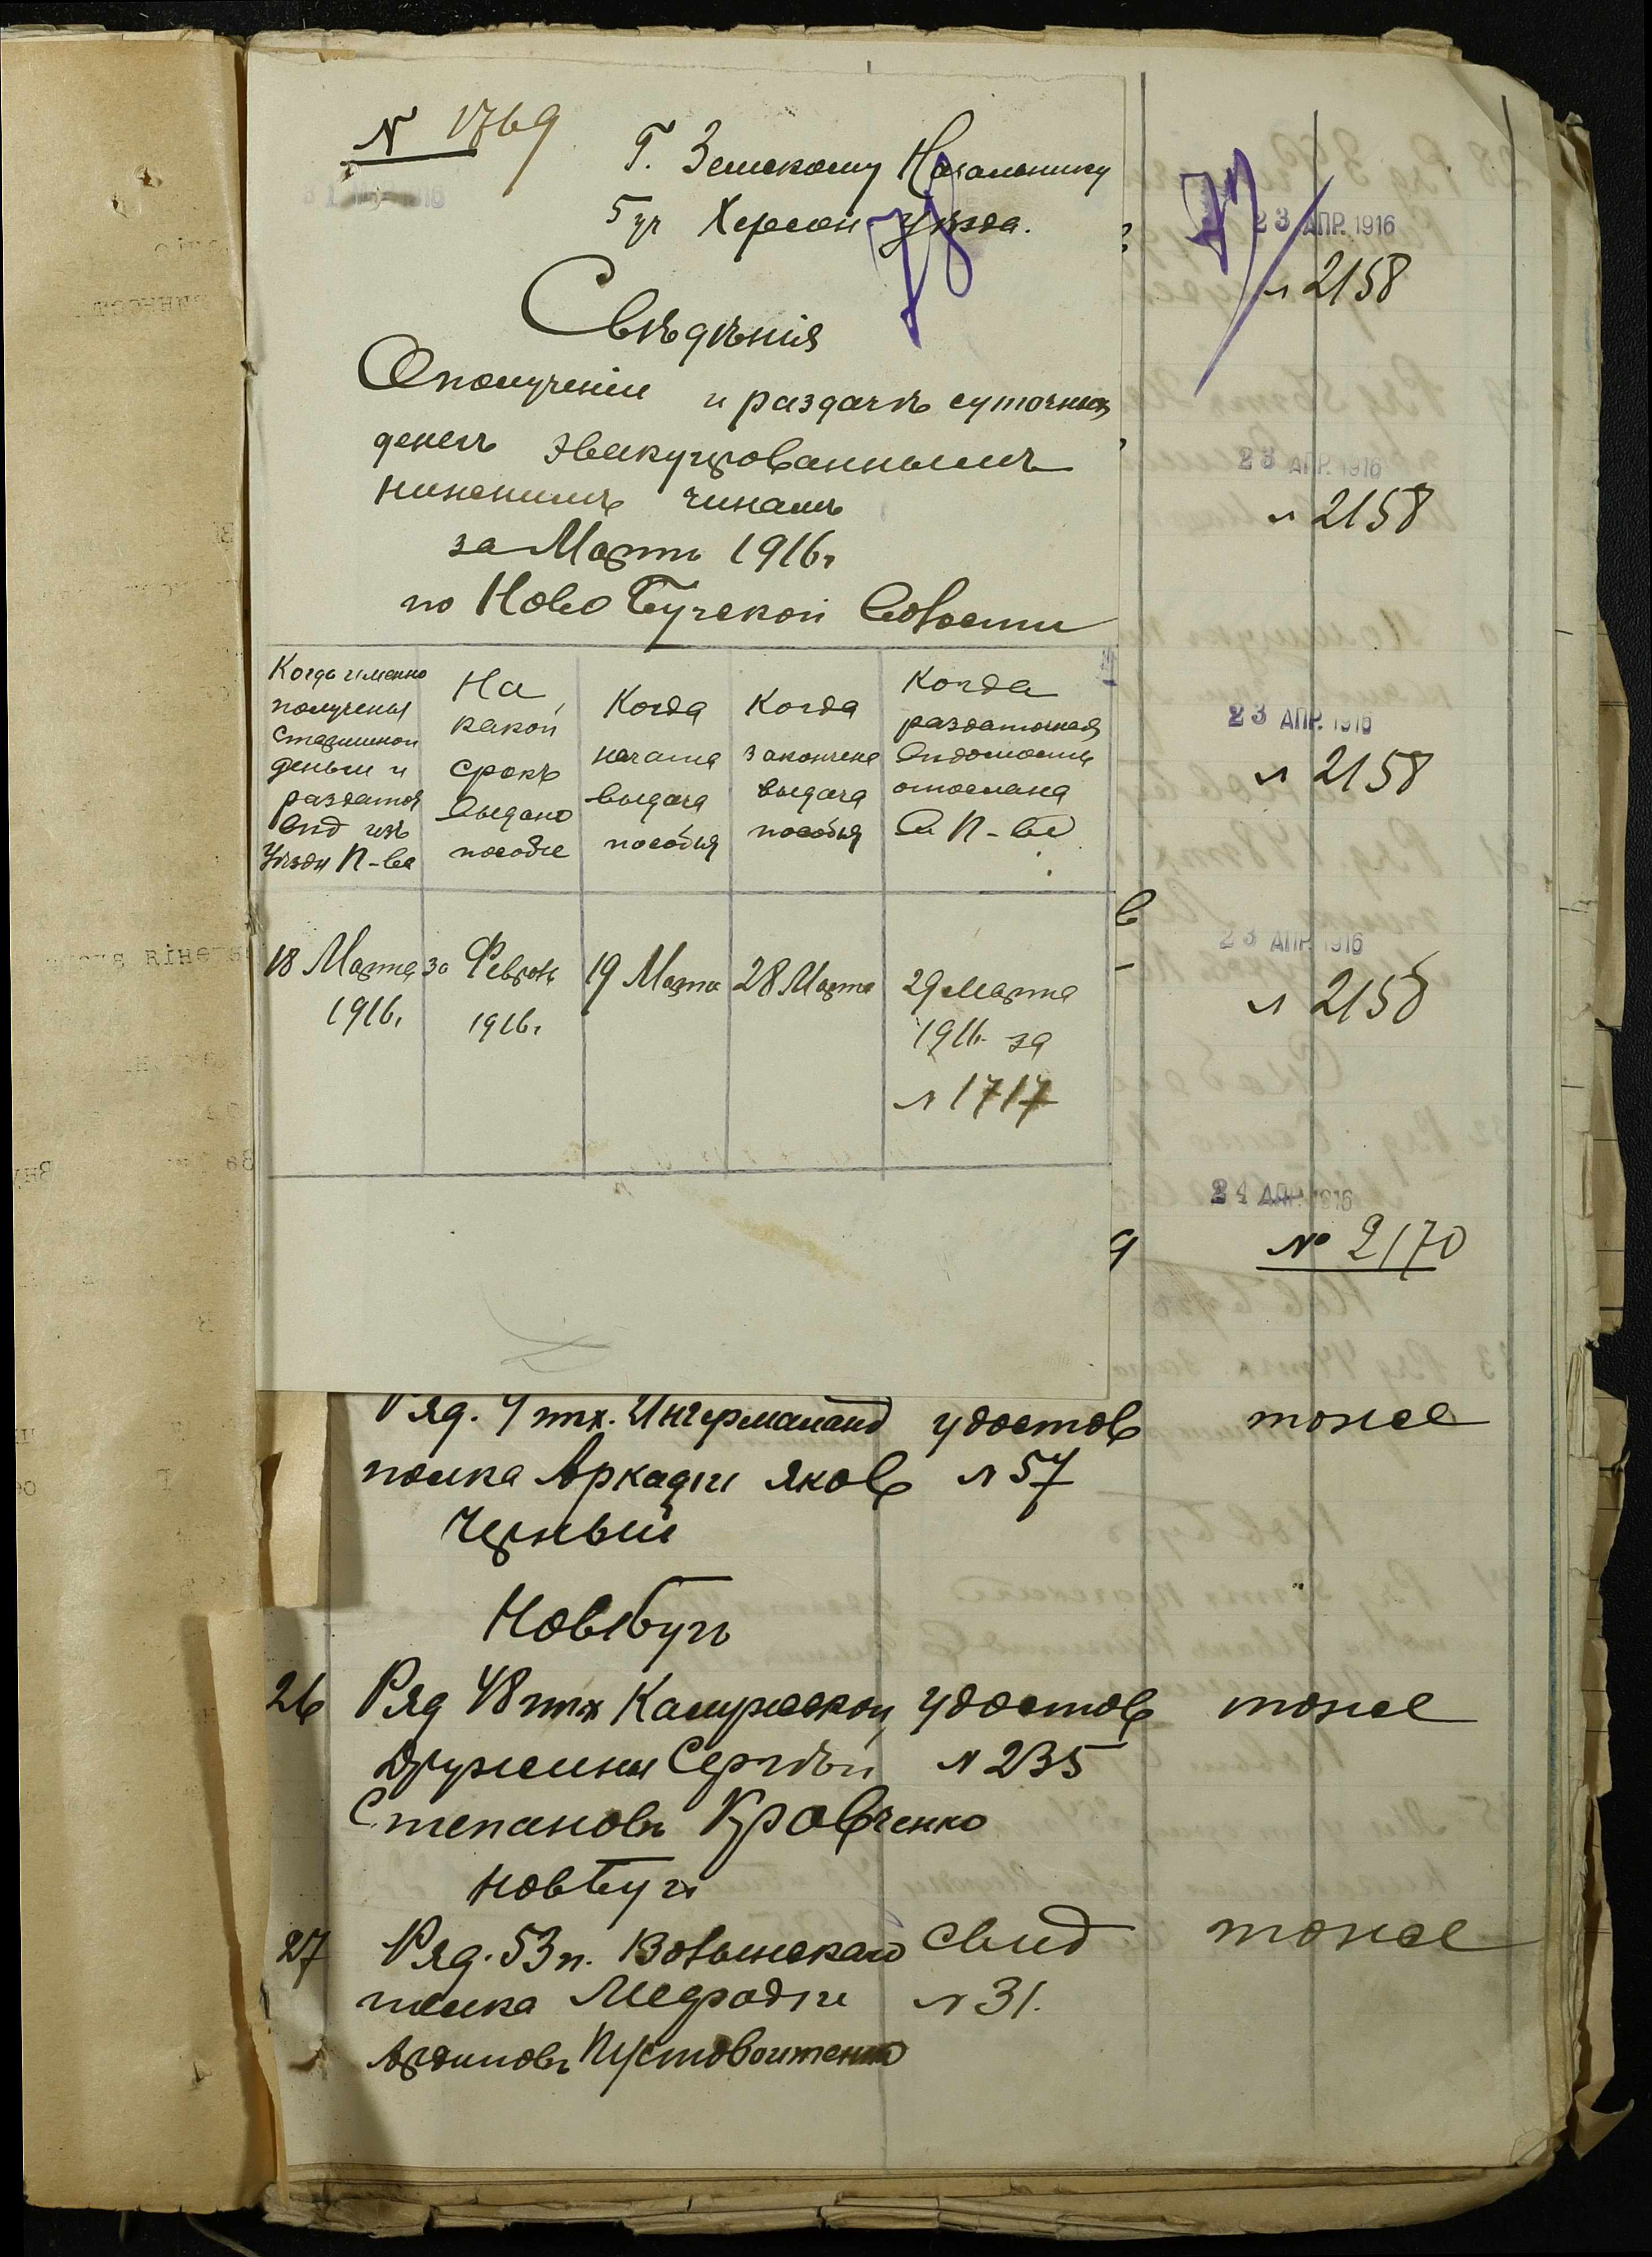 N 1769
Г. Земскому Начальнику
5 уч Херсон уѣзда.
Свѣдѣнія
О полученіи и раздачѣ суточных
денегъ эвакуированнымъ
нижнимъ чинамъ
за Мартъ 1916 г
по Ново Бугской Волости
Когда именно
получены
Старшиной
деньги и
раздаточ
вѣд изъ
Уѣздн П-ва
На
какой
срокъ
выдано
пособіе
Когда
начата
выдача
пособія
Когда
закончена
выдача
пособія
Когда
раздаточная
вѣдомость
отослана
въ П-во
18 Марта
1916.
за Февраль
1916 г.
19 Марта
28 Марта
29 Марта
1916 за
N 1717
23 АПР. 1916
N 2158
23 АПР. 1916
N 2158
23 АПР. 1916
N 2158
23 АПР. 1916
N 2158
24 АПР. 1916
№ 2170
Ряд. 9 пѣх. Ингерманланд удостов тоже
полка Аркадій Яков N 57
Черный
НовБугъ
26 Ряд 48 пѣх Калужской удостов тоже
дружины Сергѣй N 235
Степановъ Кравченко
НовБугъ
27 Ряд. 53 п. Волынскаго свид тоже
полка Мефодій N 31.
Пустовойтенко